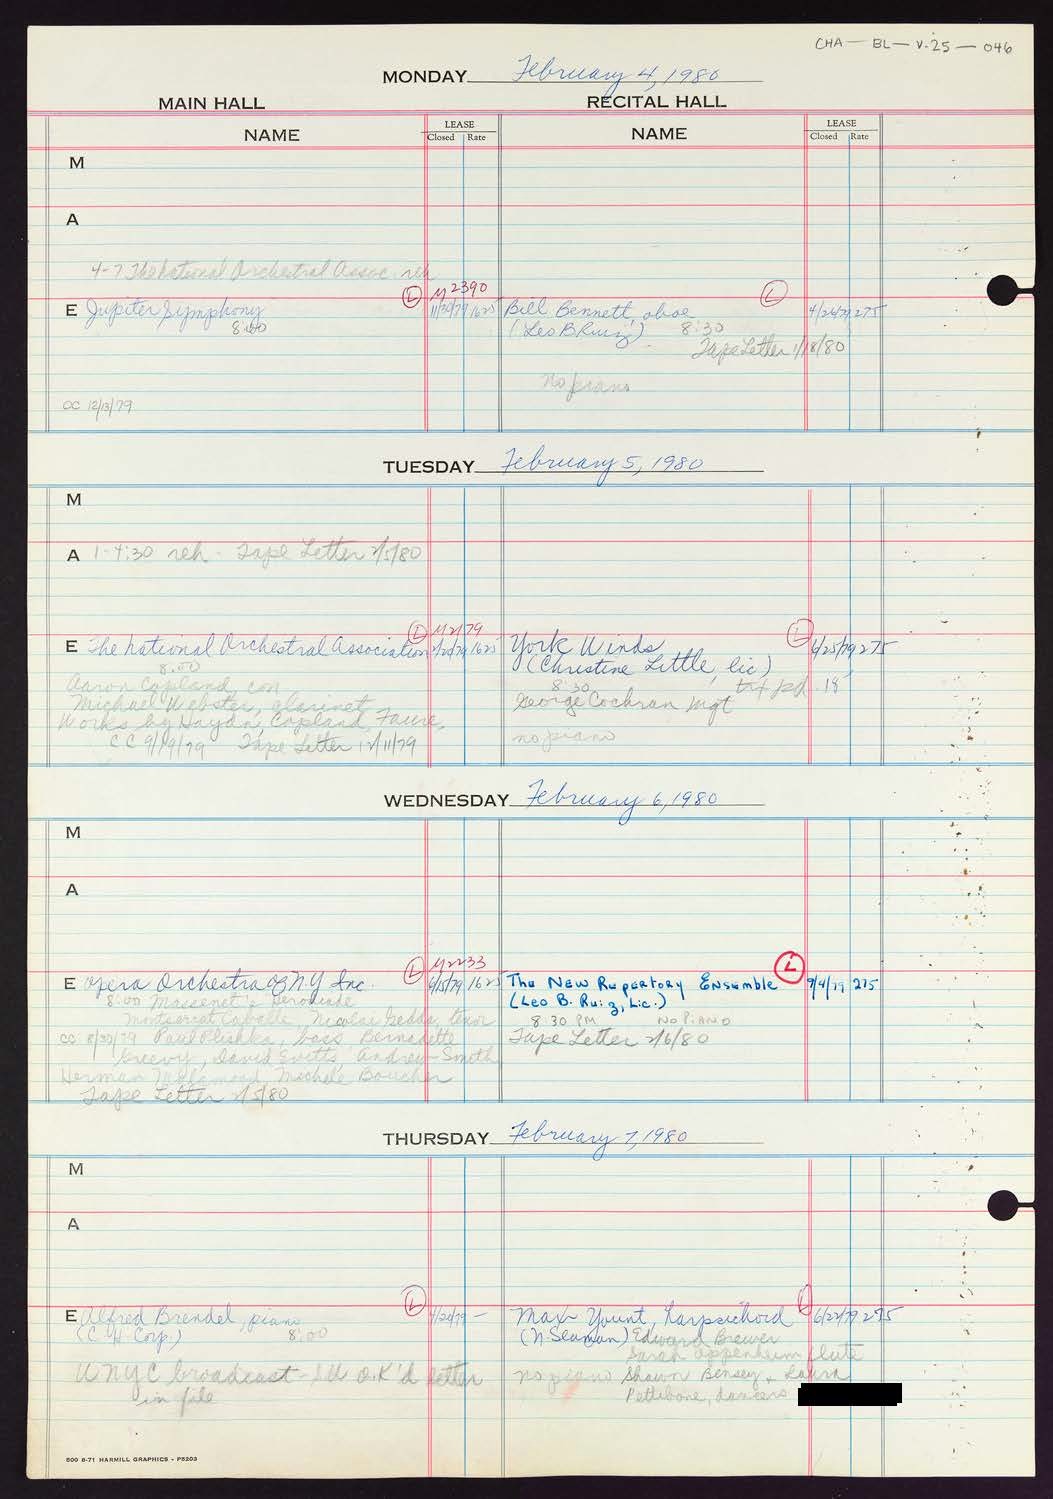 CHA — BL — V.25 — 046
MONDAY February 4, 1980
MAIN HALL
RECITAL HALL
NAME
LEASE
Closed Rate
NAME
LEASE
Closed Rate
M
A
4-7 The National Orchestral Assoc. reh
L M2390
L
E Jupiter Symphony 11/30/79 1625
8:00
Bill Bennett, oboe 4/24/79 275
(Leo B Ruiz) 8:30
Tape Letter 1/18/80
no piano
CC 12/13/79
TUESDAY February 5, 1980
M
A 1-4:30 reh - Tape Letter 2/5/80
L M2179
L
E The National Orchestral Association 1625
8:00
Aaron Copland, con
Michael Webster, clarinet
Works by Haydn, Copland, Faure,
CC 9/19/79 Tape Letter 12/11/79
York Winds 6/25/79 275
(Christine Little, lic)
8:30 pd. 18
George Cochran Mgt
no piano
WEDNESDAY February 6, 1980
M
A
L M2233
L
E Opera Orchestra of N.Y. Inc. 6/15/79 1625
8:00 Massenet's Herodiade
Montserrat Caballe, Nicolai Gedda, tenor
CC 8/30/79 Paul Plishka, bass Bernadette
Greevy, David Evitts, Andrew Smith
Herman Michele Boucher
Tape Letter 2/5/80
The New Repertory Ensemble 9/4/79 275
(Leo B. Ruiz, Lic.)
8:30 PM No Piano
Tape Letter 2/6/80
THURSDAY February 7, 1980
M
A
L
L
E Alfred Brendel, piano 4/20/79 -
(C. H. Corp.) 8:00
WNYC broadcast - O.K'd letter
in file
Max Yount, harpsichord 6/22/79 275
(N. Seaman) Edward Brewer
Sarah Oppenheim flute
no piano Shawn Bensey & Laura
Pettibone, dancers
500 8-71 HARMILL GRAPHICS - P5203